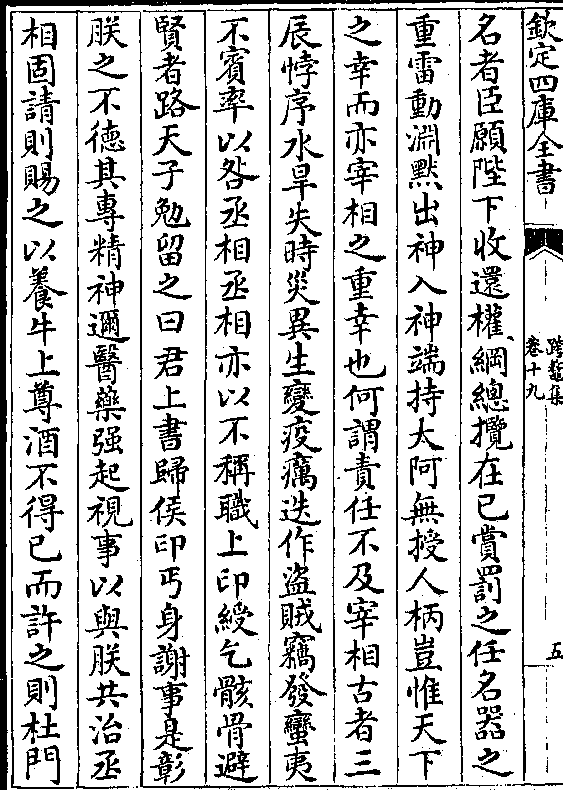 欽定四庫全書
跨鼇集
卷十九
五
名者臣願陛下收還權綱總攬在已賞罰之任名器之
重雷動淵默出神入神端持太阿無授人柄豈惟天下
之幸而亦宰相之重幸也何謂責任不及宰相古者三
辰悖序水旱失時災異生變疫癘迭作盜賊竊發蠻夷
不賓率以咎丞相丞相亦以不稱職上印綬乞骸骨避
賢者路天子勉留之曰君上書歸侯印丐身謝事是彰
朕之不德其專精神邇醫藥强起視事以與朕共治丞
相固請則賜之以養牛上尊酒不得已而許之則杜門